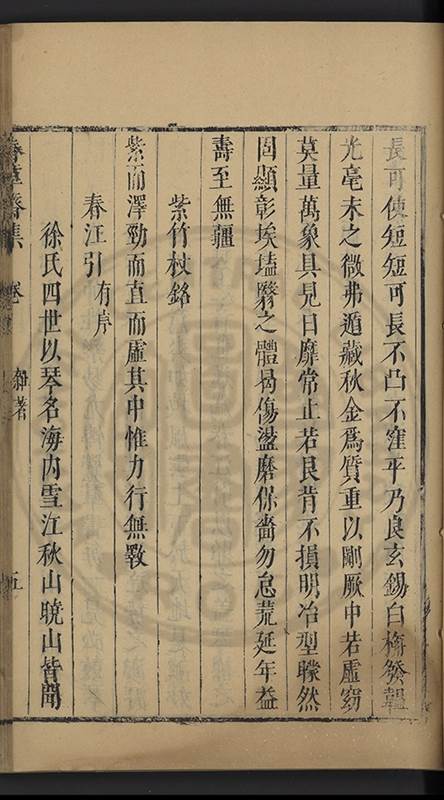 長可使短短可長不凸不窪平乃良玄錫白梅發韞
光毫末之微弗遁藏秋金爲質重以剛厥中若虛窈
莫量萬象具見日靡常止若艮背不損明冶型朦然
固顯彰埃𡏖翳之體曷傷盪磨保嗇勿怠荒延年益
壽至無疆
紫竹杖銘
紫而澤勁而直而虛其中惟力行無斁
春江引有序
徐氏四世以琴名海内雪江秋山曉山皆聞
齋集 卷
雜著
五